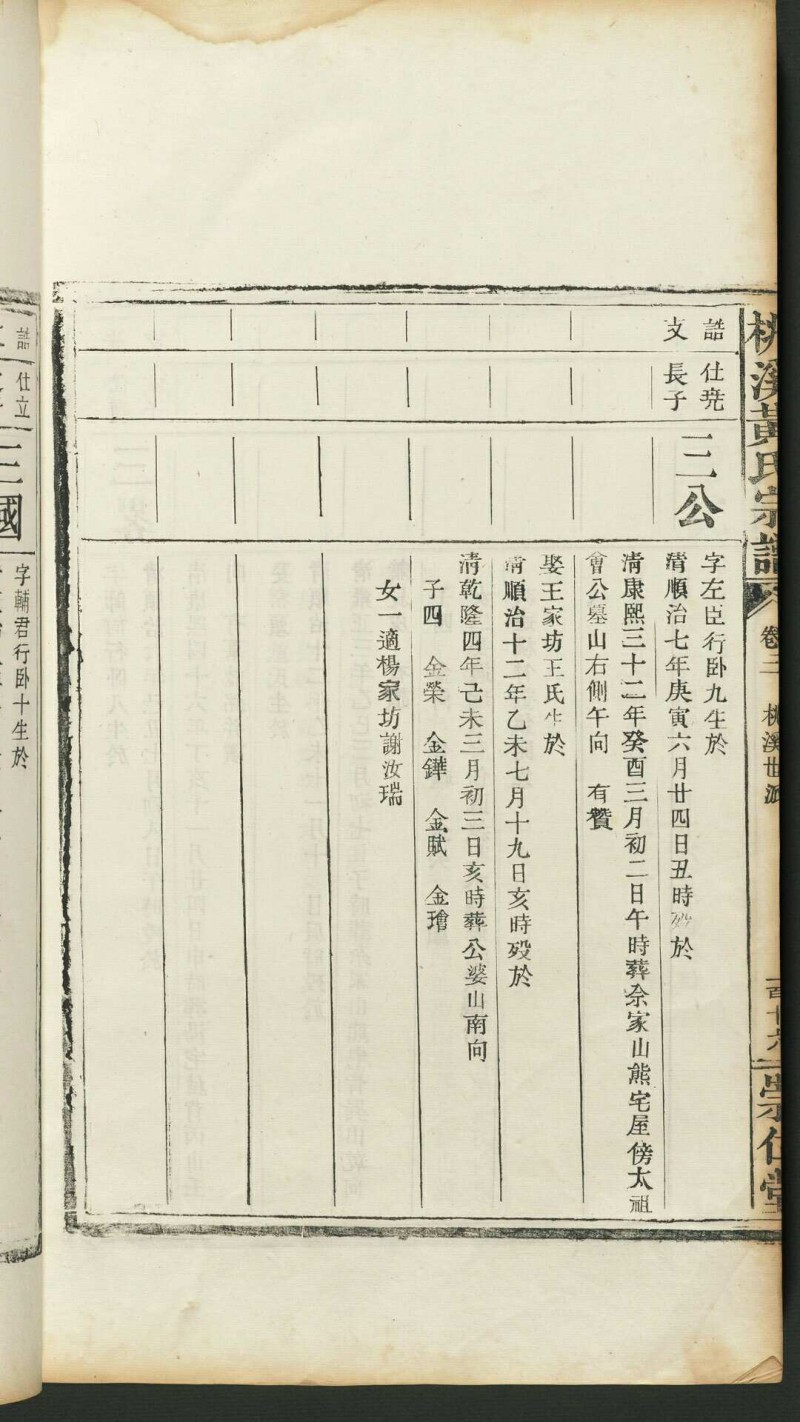 桃溪黃氏宗譜
卷三
桃溪世派
一百廿六
崇仁堂
誥
仕堯
支
長子
三公
字左臣行卧九生於
清順治七年庚寅六月廿四日丑時歿於
清康熙三十二年癸酉三月初二日午時葬佘家山熊宅屋傍太祖
會公墓山右側午向 有贊
娶王家坊王氏生於
清順治十二年乙未七月十九日亥時歿於
清乾隆四年己未三月初三日亥時葬公婆山南向
子四 金榮 金鏵 金賦 金璯
女一適楊家坊謝汝瑞
誥
仕立
三國
字輔君行卧十生於